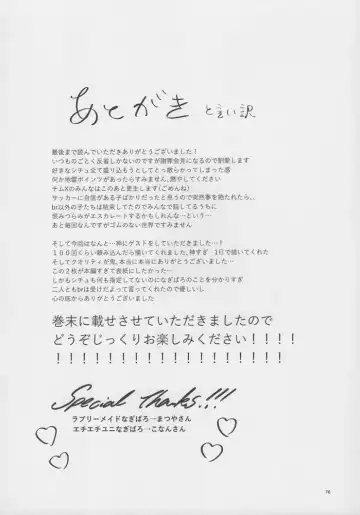 あとがき と言い訳
最後まで読んでいただきありがとうございました！
いつものごとく反省しかないのですが謝罪会見になるので割愛します
好きなシチュ全て盛り込もうとしてとっ散らかってしまった感
何か地雷ポイントがあったらすみません、燃やしてください
チムXのみんなはこのあと更生します（ごめんね）
サッカーに自信がある子ばかりだったと思うので突然夢を絶たれたら、、
br以外の子たちは結束してたのでみんなで話してるうちに
恨みつらみがエスカレートするかもしれんな…という…
あと毎回なんですがゴムのない世界ですみません
そして今回はなんと…神にゲストをしていただきました…！
100回くらい頼み込んだら描いてくれました、神すぎ 1日で描いてくれた
そしてクオリティが鬼、本当に本当にありがとうございました…
この2枚が本編すぎて表紙にしたかった…
しかもシチュも何も指定してないのになぎばろのことを分かりすぎ
二人ともbrは受けだよって言ってくれたので優しいし
心の底からありがとうございました
巻末に載せさせていただきましたので
どうぞじっくりお楽しみください！！！！
！！！！！！！！！！！！！！！！！！
Special Thanks!!!
ラブリーメイドなぎばろ→まつやさん
エチエチユニなぎばろ→こなんさん
76